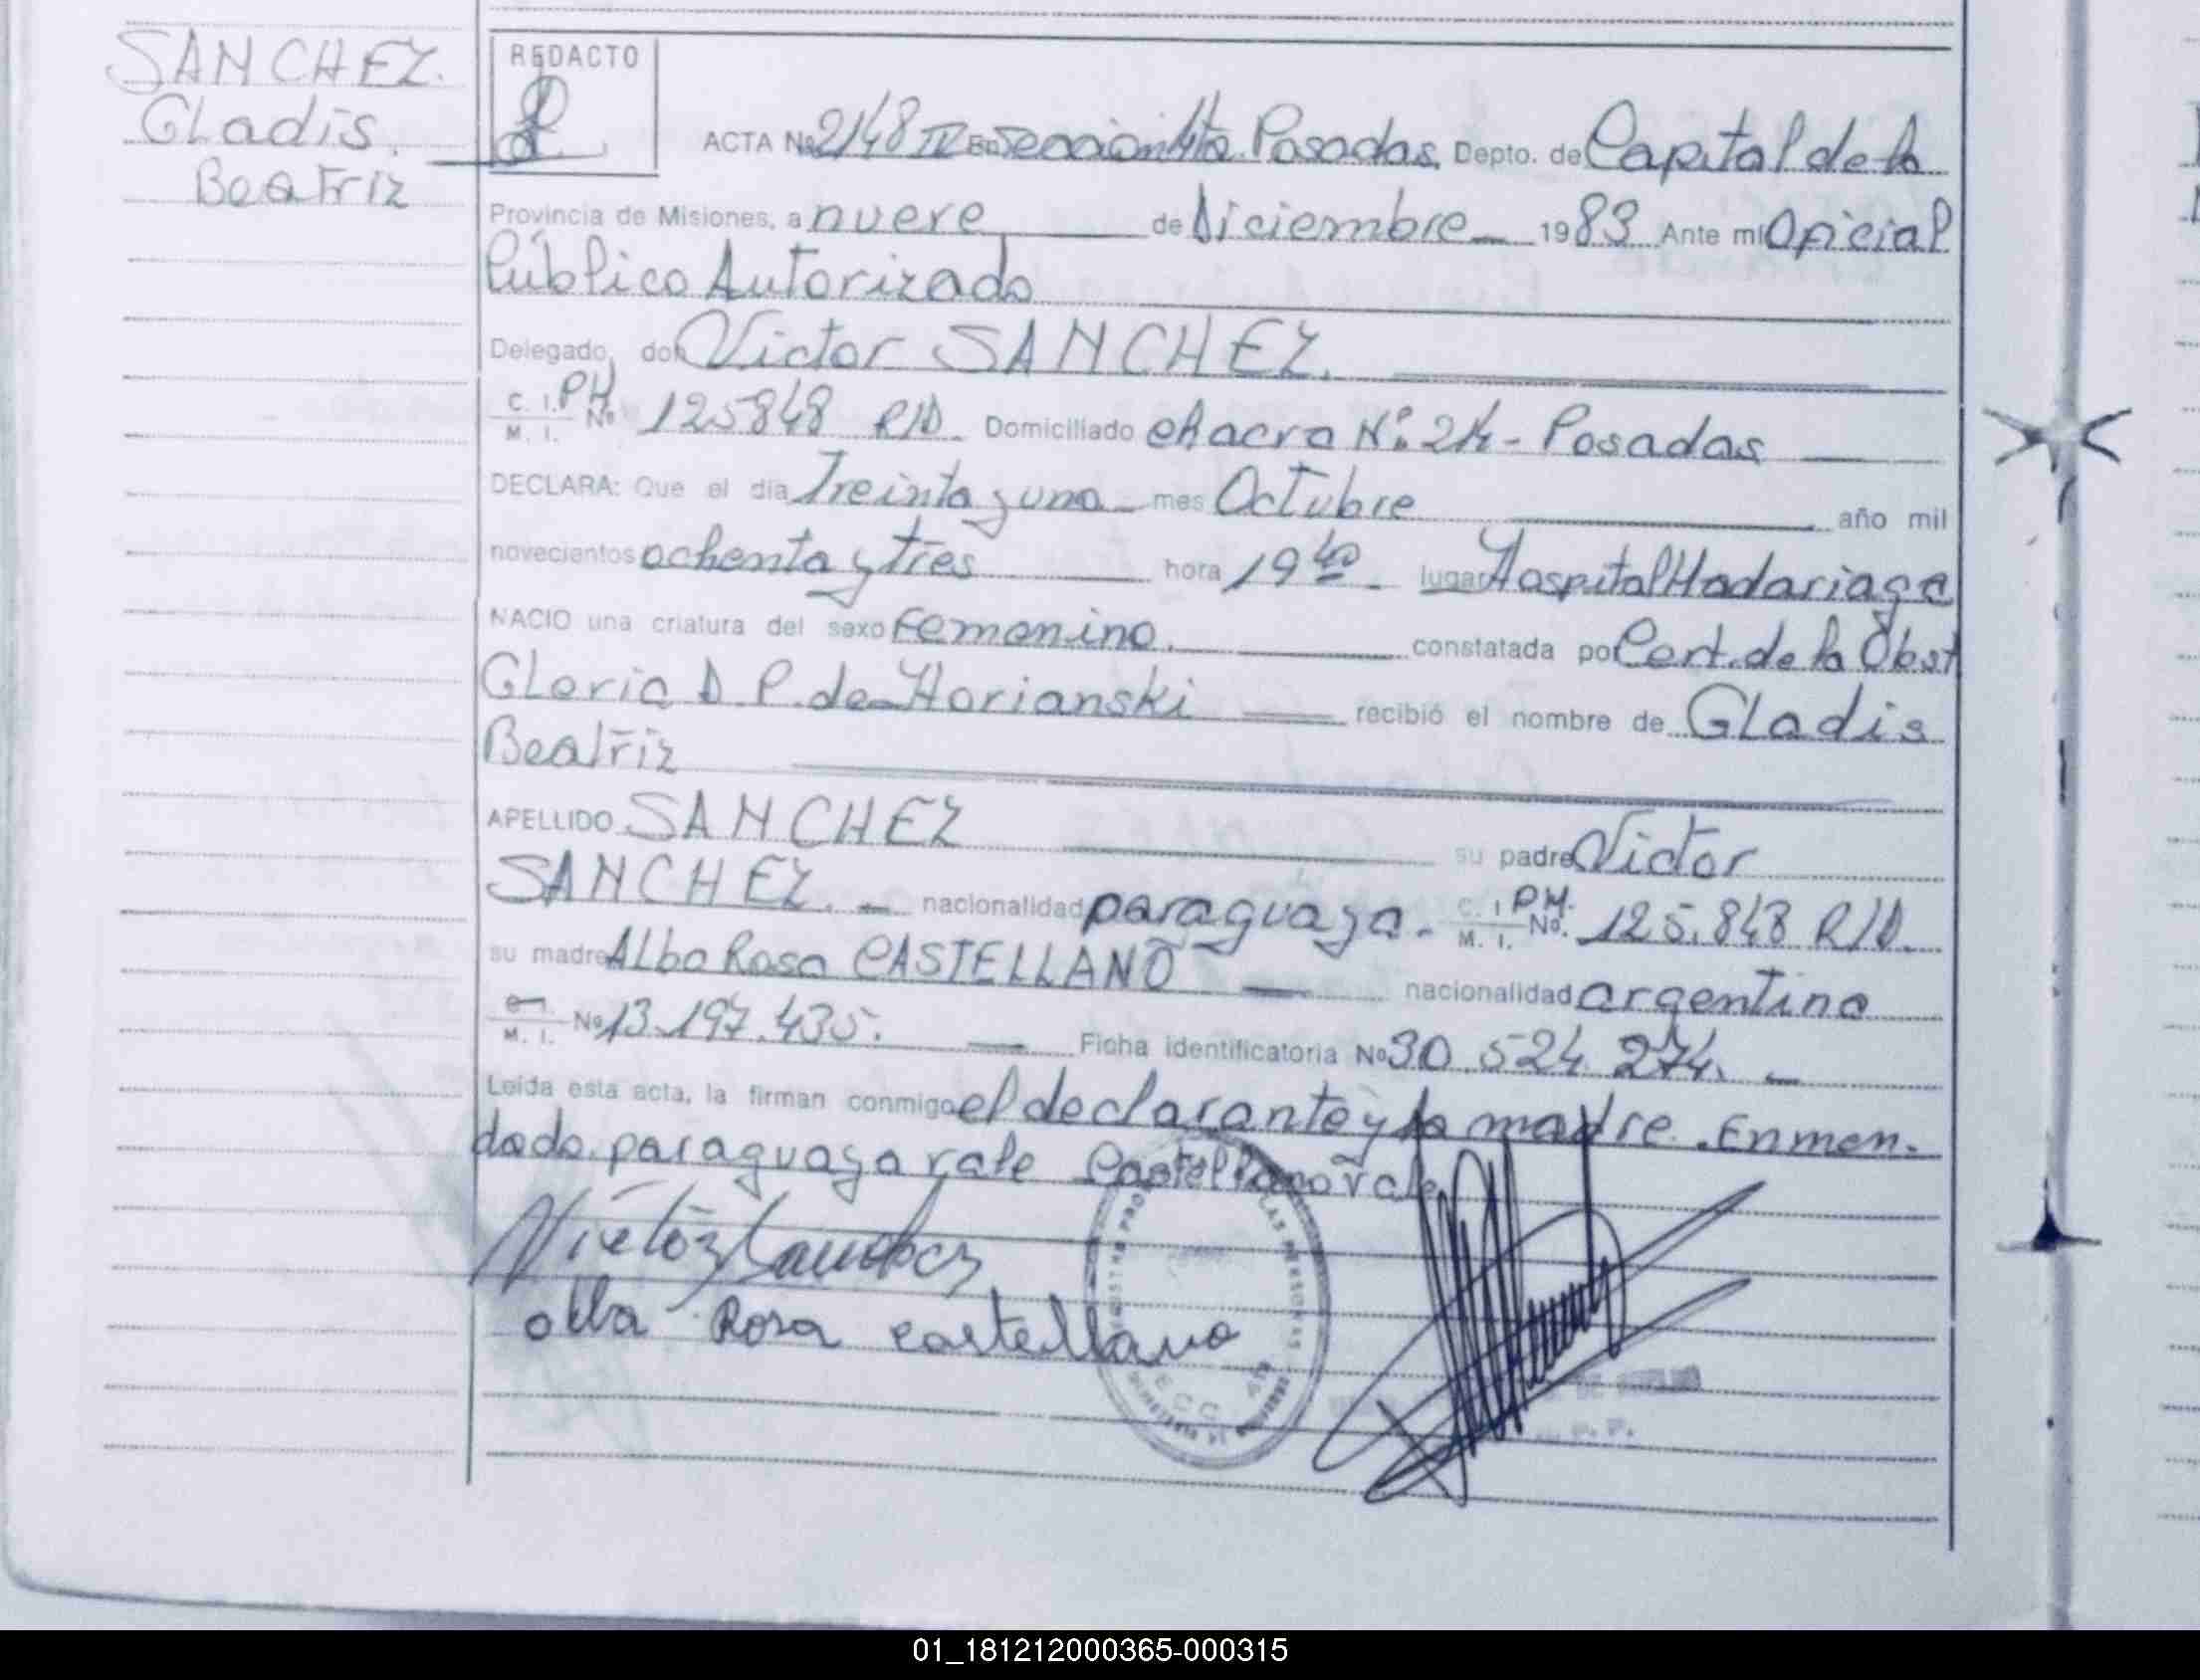 SANCHEZ.
Gladis.
Beatriz
REDACTO
ACTA No 2148 IV En Sección 4ta Posadas, Depto. de Capital de la
Provincia de Misiones, a nueve de Diciembre 1983 Ante mí Oficial
Público Autorizado
Delegado, don Victor SANCHEZ.
C. I. PY No 125848 R/D. Domiciliado chacra N° 24 - Posadas
M. I.
DECLARA: Que el día Treinta y uno - mes Octubre año mil
novecientos ochenta y tres hora 19 40 - lugar Hospital Madariaga
NACIO una criatura del sexo Femenino. constatada por Cert. de la Obst
Gloria D. P. de Horianski recibió el nombre de Gladis
Beatriz
APELLIDO SANCHEZ su padre Victor
SANCHEZ. - nacionalidad paraguaya. - C. I. PY. No. 125.848 R/D.
M. I.
su madre Alba Rosa CASTELLANO nacionalidad argentina
M. I. No 13.197.435. Ficha identificatoria No 30.524.274. -
Leída esta acta, la firman conmigo el declarante y la madre. Enmen-
dado. paraguaya vale Castellano vale
Victor Sanchez
alba Rosa castellano
01_181212000365-000315